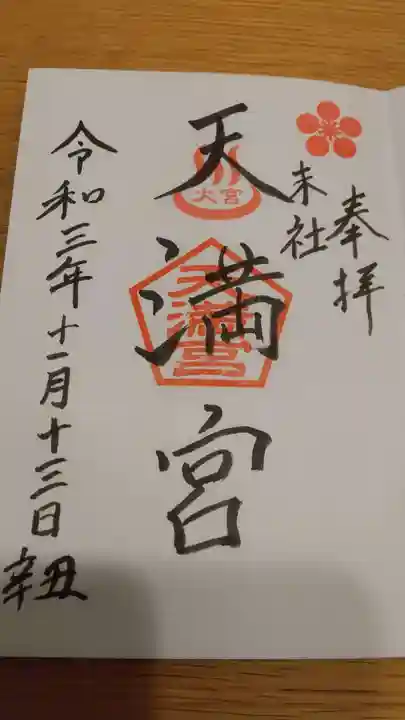 奉拝
末社
天満宮
火宮
天満宮
令和三年十一月十三日
辛丑